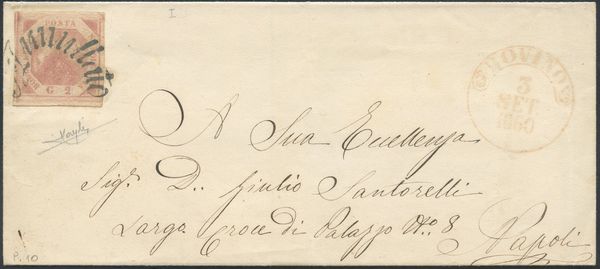 I
POSTA
G 2
Annullato
BOVINO
3
SET
1860
A Sua Eccellenza
Sig.r D. Giulio Santorelli
Largo Croce di Palazzo No. 8
Napoli
P. 10